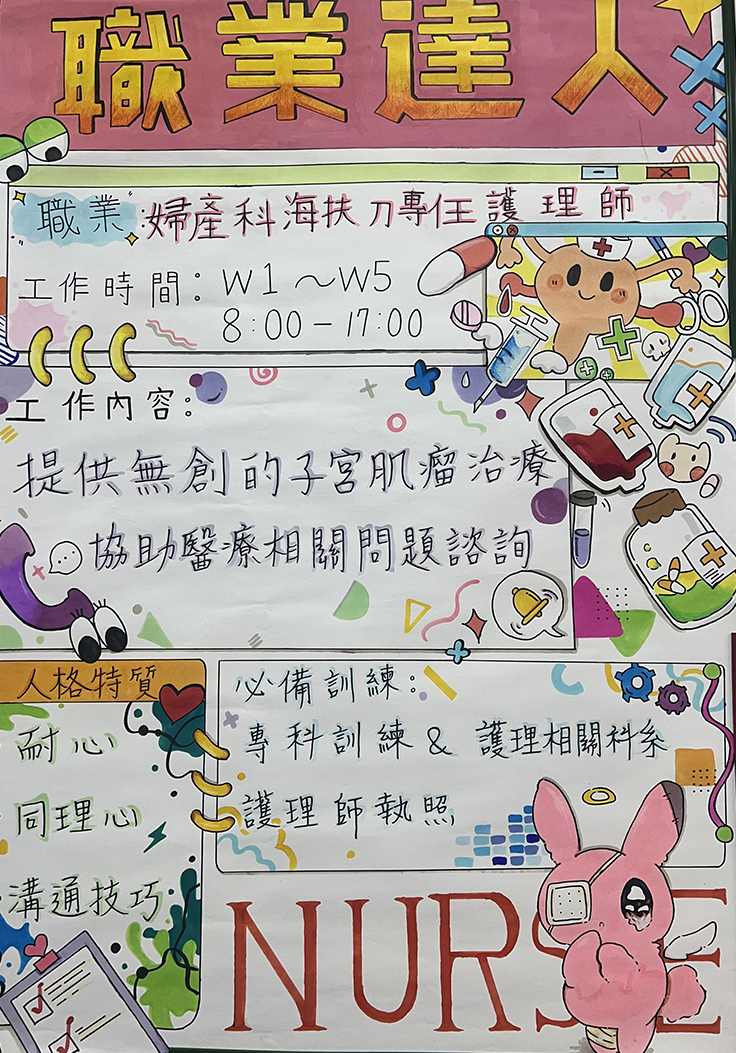 職業達人
職業:婦產科海扶刀專任護理師
工作時間:W1~W5
8:00-17:00
工作內容:
提供無創的子宮肌瘤治療
協助醫療相關問題諮詢
人格特質
耐心
同理心
溝通技巧
必備訓練:
專科訓練 & 護理相關科系
護理師執照
NURSE